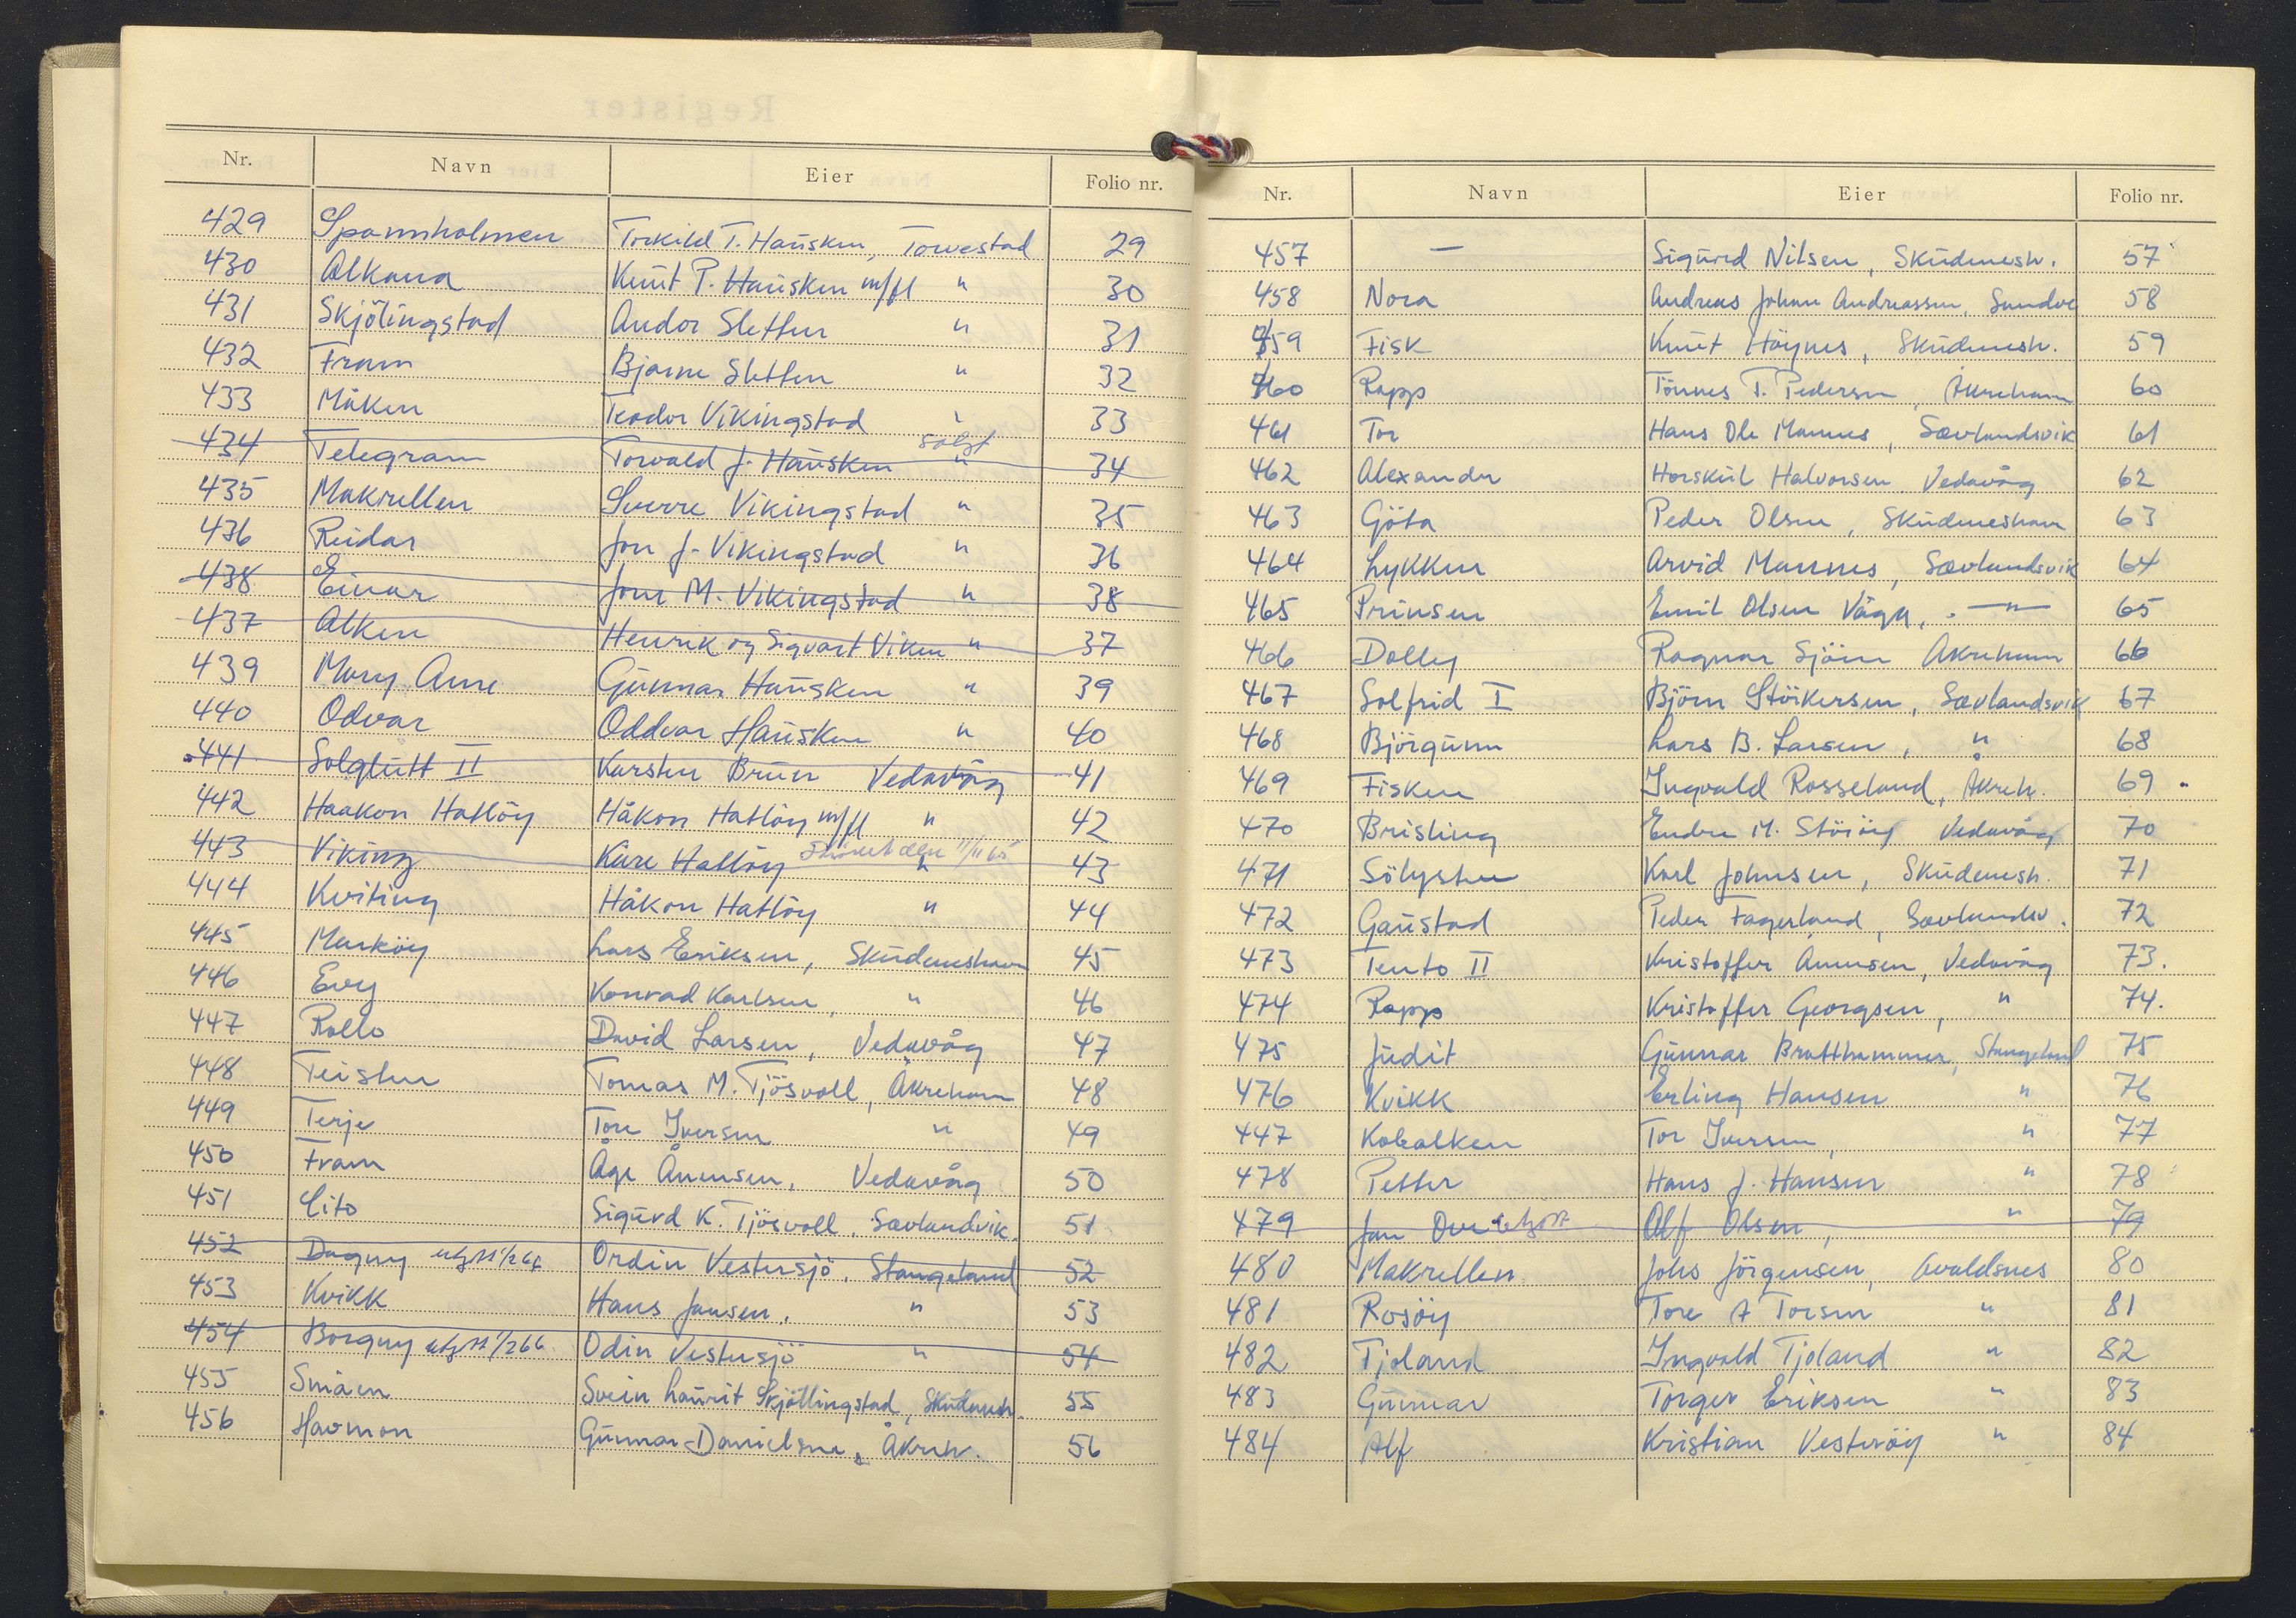 Register
Nr. Navn Eier Folio nr.
429 Spannholmen Torkild T. Hausken, Torvestad 29
430 Alkana Knut P. Hausken m/fl " 30
431 Skjölingstad Andor Sletten " 31
432 Fram Bjarne Sletten " 32
433 Måken Teodor Vikingstad " 33
434 Telegram Torvald J. Hausken solgt " 34
435 Makrellen Sverre Vikingstad " 35
436 Reidar Jon J. Vikingstad " 36
438 Einar Jone M. Vikingstad " 38
437 Alken Henrik og Sigvart Viken " 37
439 Mary Ann Gunnar Hausken " 39
440 Odvar Oddvar Hausken " 40
441 Solglutt II Karsten Brun Vedavåg 41
442 Haakon Hatlöy Håkon Hatlöy m/fl " 42
443 Viking Kåre Hatlöy 11/11 65 " 43
444 Kviting Håkon Hatlöy " 44
445 Marköy Lars Eriksen, Skudeneshavn 45
446 Evy Konrad Karlsen, " 46
447 Rollo David Larsen, Vedavåg 47
448 Teisten Tomas M. Tjösvoll, Åkrehamn 48
449 Terje Tore Iversen " 49
450 Fram Åge Ånensen, Vedavåg 50
451 Cito Sigurd K. Tjösvoll, Sævlandvik. 51
452 Dagny utg 11/2 66 Ordin Vestersjö, Stangeland 52
453 Kvikk Hans Jansen, " 53
454 Borgny utg 11/2 66 Odin Vestersjö " 54
455 Småen Svein Laurit Skjöllingstad, Skudenesh. 55
456 Havmon Gunnar Danielsen, Åkreh. 56
Nr. Navn Eier Folio nr.
457 — Sigurd Nilsen, Skudenesh. 57
458 Nora Andreas Johan Andreassen, Sandve 58
459 Fisk Knut Höynes, Skudenesh. 59
460 Rapp Tönnes T. Pedersen, Åkrehamn 60
461 Tor Hans Ole Mannes, Sævlandsvik 61
462 Alexander Horskul Halvorsen Vedavåg 62
463 Göta Peder Olsen, Skudeneshavn 63
464 Lykken Arvid Mannes, Sævlandsvik 64
465 Prinsen Emil Olsen Våga, — " — 65
466 Dolly Ragnar Sjöen Åkrehamn 66
467 Solfrid I Björn Störkersen, Sævlandsvik 67
468 Björgunn Lars B. Larsen, " 68
469 Fisken Ingvald Rosseland, Åkreh. 69
470 Brisling Endre M. Störöy Vedavåg 70
471 Sölysten Karl Johnsen, Skudenesh. 71
472 Gaustad Peder Fagerland, Sævlandsv. 72
473 Tento II Kristoffer Ånensen, Vedavåg 73.
474 Rapp Kristoffer Georgsen, " 74.
475 Judit Gunnar Bratthammer, Stangeland 75
476 Kvikk Erling Hansen " 76
447 Kobalken Tor Iversen, " 77
478 Petter Hans J. Hansen " 78
479 Jan Ove Alf Olsen, " 79
480 Makrellen Johs Jörgensen, Avaldsnes 80
481 Rosöy Tore A Torsen " 81
482 Tjoland Ingvald Tjoland " 82
483 Gunnar Torger Eriksen " 83
484 Alf Kristian Vesteröy " 84